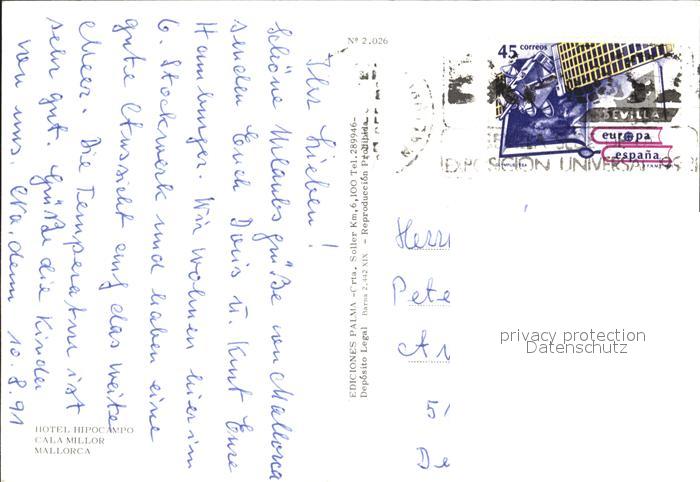 Ihr Lieben!
Schöne Urlaubsgrüße von Mallorca
senden Euch Doris u. Kurt Eure
Hamburger. Wir wohnen hier im
6. Stockwerk und haben eine
gute Aussicht auf das weite
Meer. Die Temperatur ist
sehr gut. Grüße die Kinder
von uns. dem 10.8.91
HOTEL HIPOCAMPO
CALA MILLOR
MALLORCA
Nº 2.026
EDICIONES PALMA -Crta. Soller Km,6,100 Tel.289946-
Depósito Legal Barna 2.442 XIX - Reproducción Prohibida
45 correos
SEVILLA
europa
españa
EXPOSICIÓN UNIVERSAL 92
Herr
Pete
51
De
privacy protection
Datenschutz